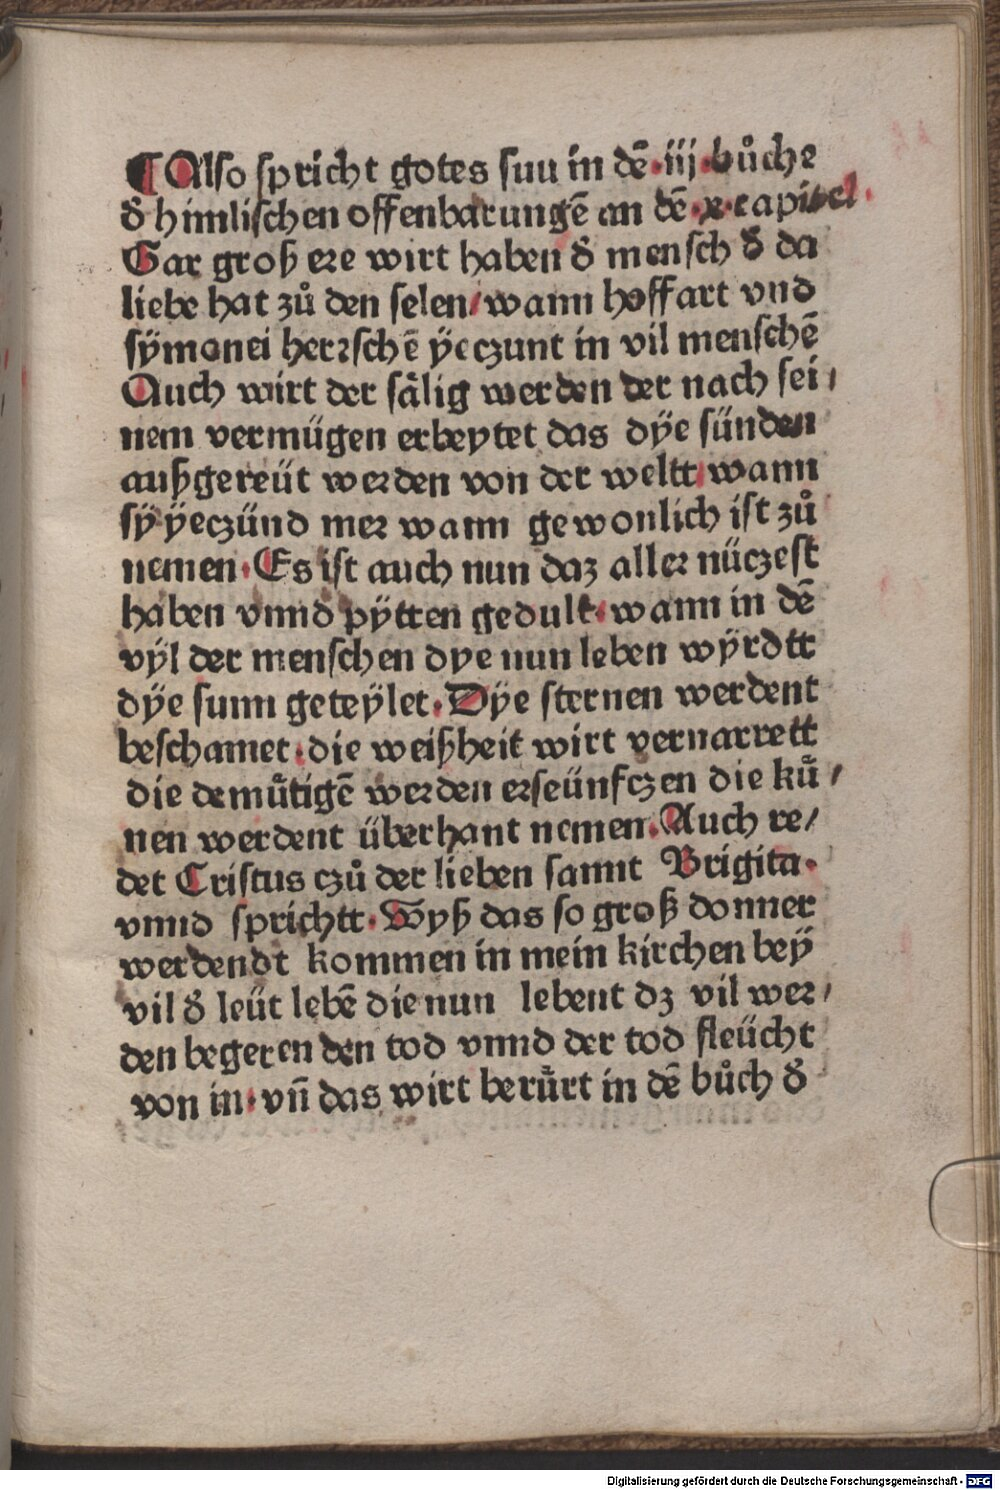 ¶ Also spricht gotes sun in dē·iij·bůche
đ himlischen offenbarungē an dē·x·capitel·
Gar groß ere wirt haben đ mensch đ da
liebe hat zů den selen/wann hoffart vnd
sÿmonei herꝛschē ÿeczunt in vil menschē
Auch wirt der sålig werden der nach sei/
nem vermügen erbeytet das dÿe sünden
außgereüt werden von der weltt/wann
sÿ ÿeczünd mer wann gewonlich ist zů
nemen·Es ist auch nun daz aller nüczest
haben vnnd pÿtten gedult·wann in dē
vÿl der menschen dye nun leben wÿrdtt
dÿe sunn geteÿlet·Dÿe sternen werdent
beschamet·die weißheit wirt vernarrett
die demůtigē werden erseünfczen die ků/
nen werdent überhant nemen·Auch re/
det Cristus czů der lieben sannt Brigita·
vnnd sprichtt·Wyß das so groß donner
werdendt kommen in mein kirchen beÿ
vil đ leüt lebē die nun lebent dz vil wer/
den begeren den tod vnnd der tod fleücht
von in·vn̄ das wirt berůrt in dē bůch đ
Digitalisierung gefördert durch die Deutsche Forschungsgemeinschaft - DFG